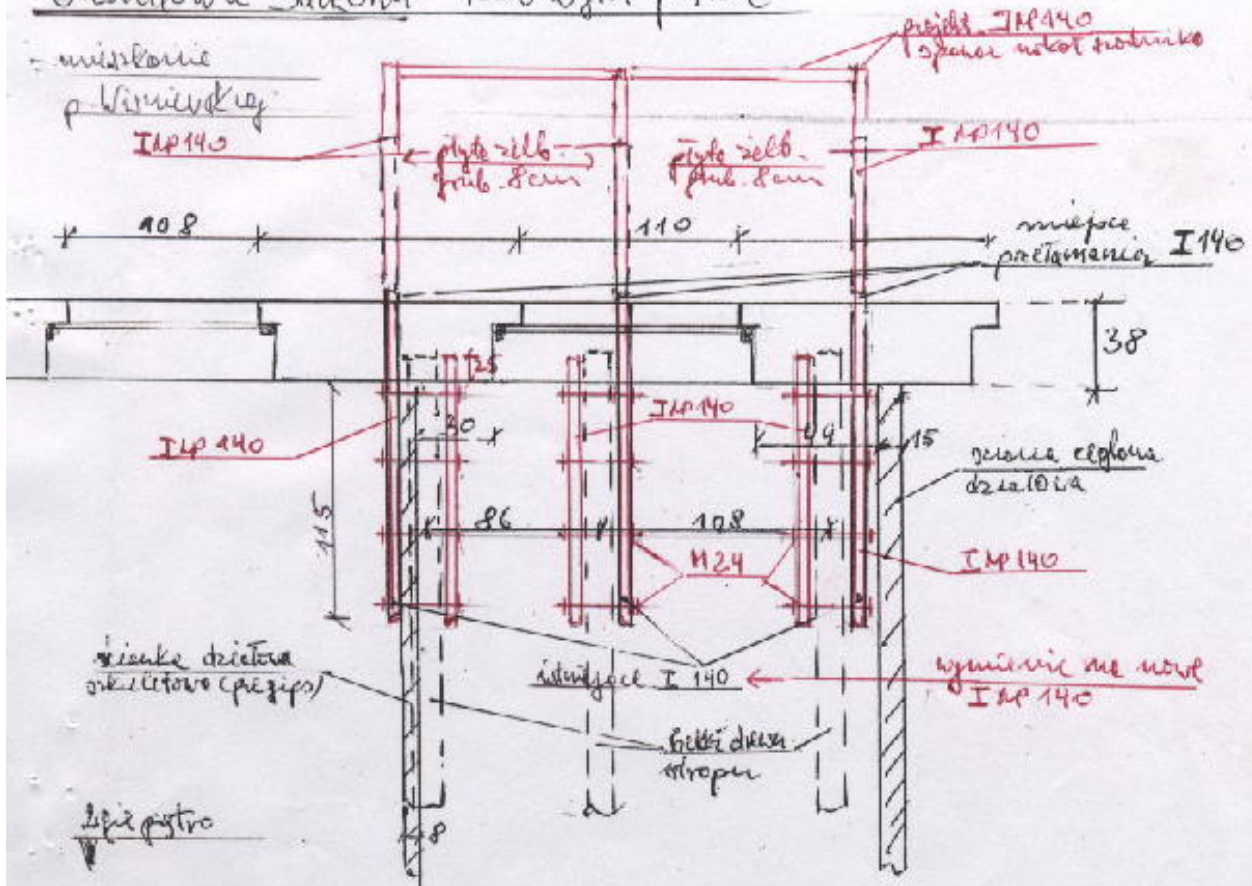 - mieszkanie
p. Wiśniewskiej
projekt. INP140
INP140
płyta żelb.
grub. 8cm
płyta żelb.
grub. 8cm
INP140
108
110
miejsce
przełamania I 140
38
25
INP 140
30
INP140
44
15
ściana ceglana
działowa
115
86
108
M24
INP 140
ścianka działowa
szkieletowa (prégips)
istniejące I 140
wymienić na nowe
INP 140
belki drewn.
stropu
piętro
8